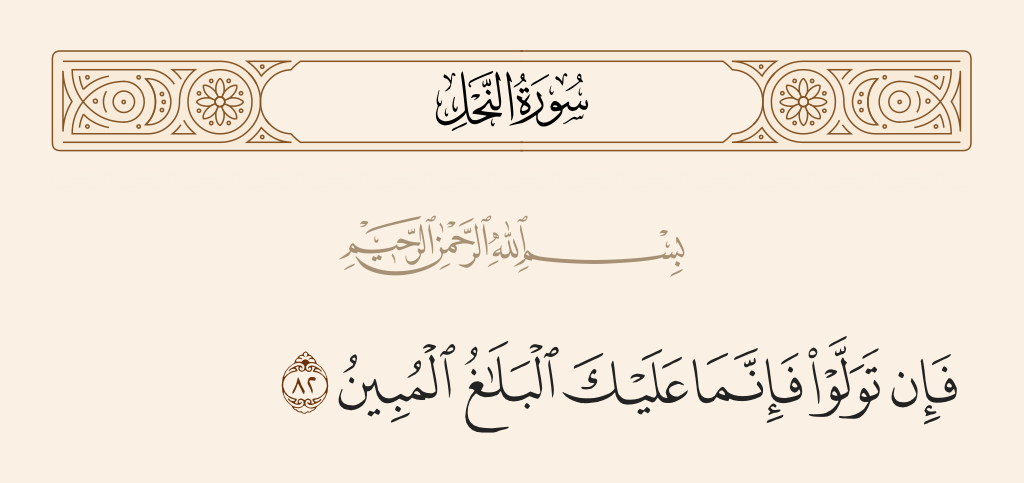 سُورَةُ النَّحْلِ
بِسْمِ ٱللَّهِ ٱلرَّحْمَٰنِ ٱلرَّحِيمِ
فَإِن تَوَلَّوْا۟ فَإِنَّمَا عَلَيْكَ ٱلْبَلَٰغُ ٱلْمُبِينُ ٨٢